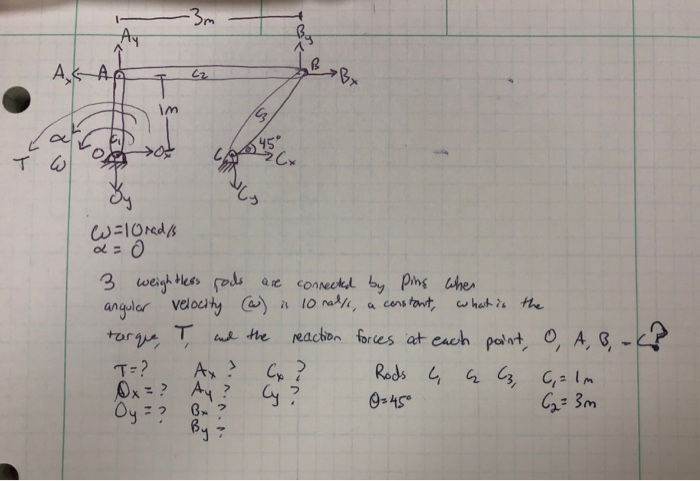 3m
Ay
By
Ax
A
C2
B
Bx
1m
C3
α
C1
45°
T
ω
O
Ox
C
Cx
Oy
Cy
ω=10rad/s
α= 0
3 weightless rods are connected by pins when
angular velocity (ω) is 10 rad/s, a constant, what is the
torque, T, and the reaction forces at each point, O, A, B, - C?
T=? Ax ? Cx ? Rods C1 C2 C3, C1= 1m
Ox=? Ay ? Cy ? θ=45° C2= 3m
Oy=? Bx ?
By ?